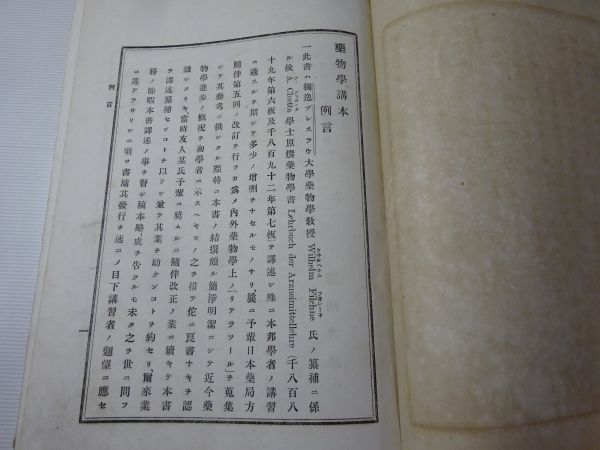 藥物學講本
例言
一此書ハ獨逸ブレスラウ大學藥物學敎授 Wilhelm Filehne 氏ノ纂補ニ係
ル故 A. Cloetta 學士原撰藥物學書 Lehrbuch der Arzneimittellehre (千八百八
十九年第六板及千八百九十二年第七板ヲ譯述シ殊ニ本邦學者ノ講習
ニ適スルヲ期シテ多少ノ增刪ヲナセルモノナリ、曩ニ予輩日本藥局方
隨伴第五回ノ改訂ヲ行フカ爲メ內外藥物學上ノ「リテラツール」ヲ蒐集
シテ其參考ニ供シタル際特ニ本書ノ結撰頗ル簡淨明潔ニシテ近今藥
物學進步ノ概況ヲ初學者ニ示スヘキモノ之ヲ措テ佗ニ良書ナキヲ認
識シタリキ、當時友人某氏予輩ニ ムルニ隨伴改正ノ業ニ續キテ本書
ヲ譯述纂補センコトヲ以テシ兼テ其業ヲ助ケンコトヲ約セリ、爾來業
務ノ餘暇本書譯述ノ事ヲ督シ稿本略 成ヲ吿クルモ未タ之ヲ世ニ問フ
ニ遑アラサリシニ頃日書舖其發行ヲ速ニシ目下講習者ノ 望ニ應セ
例言
一